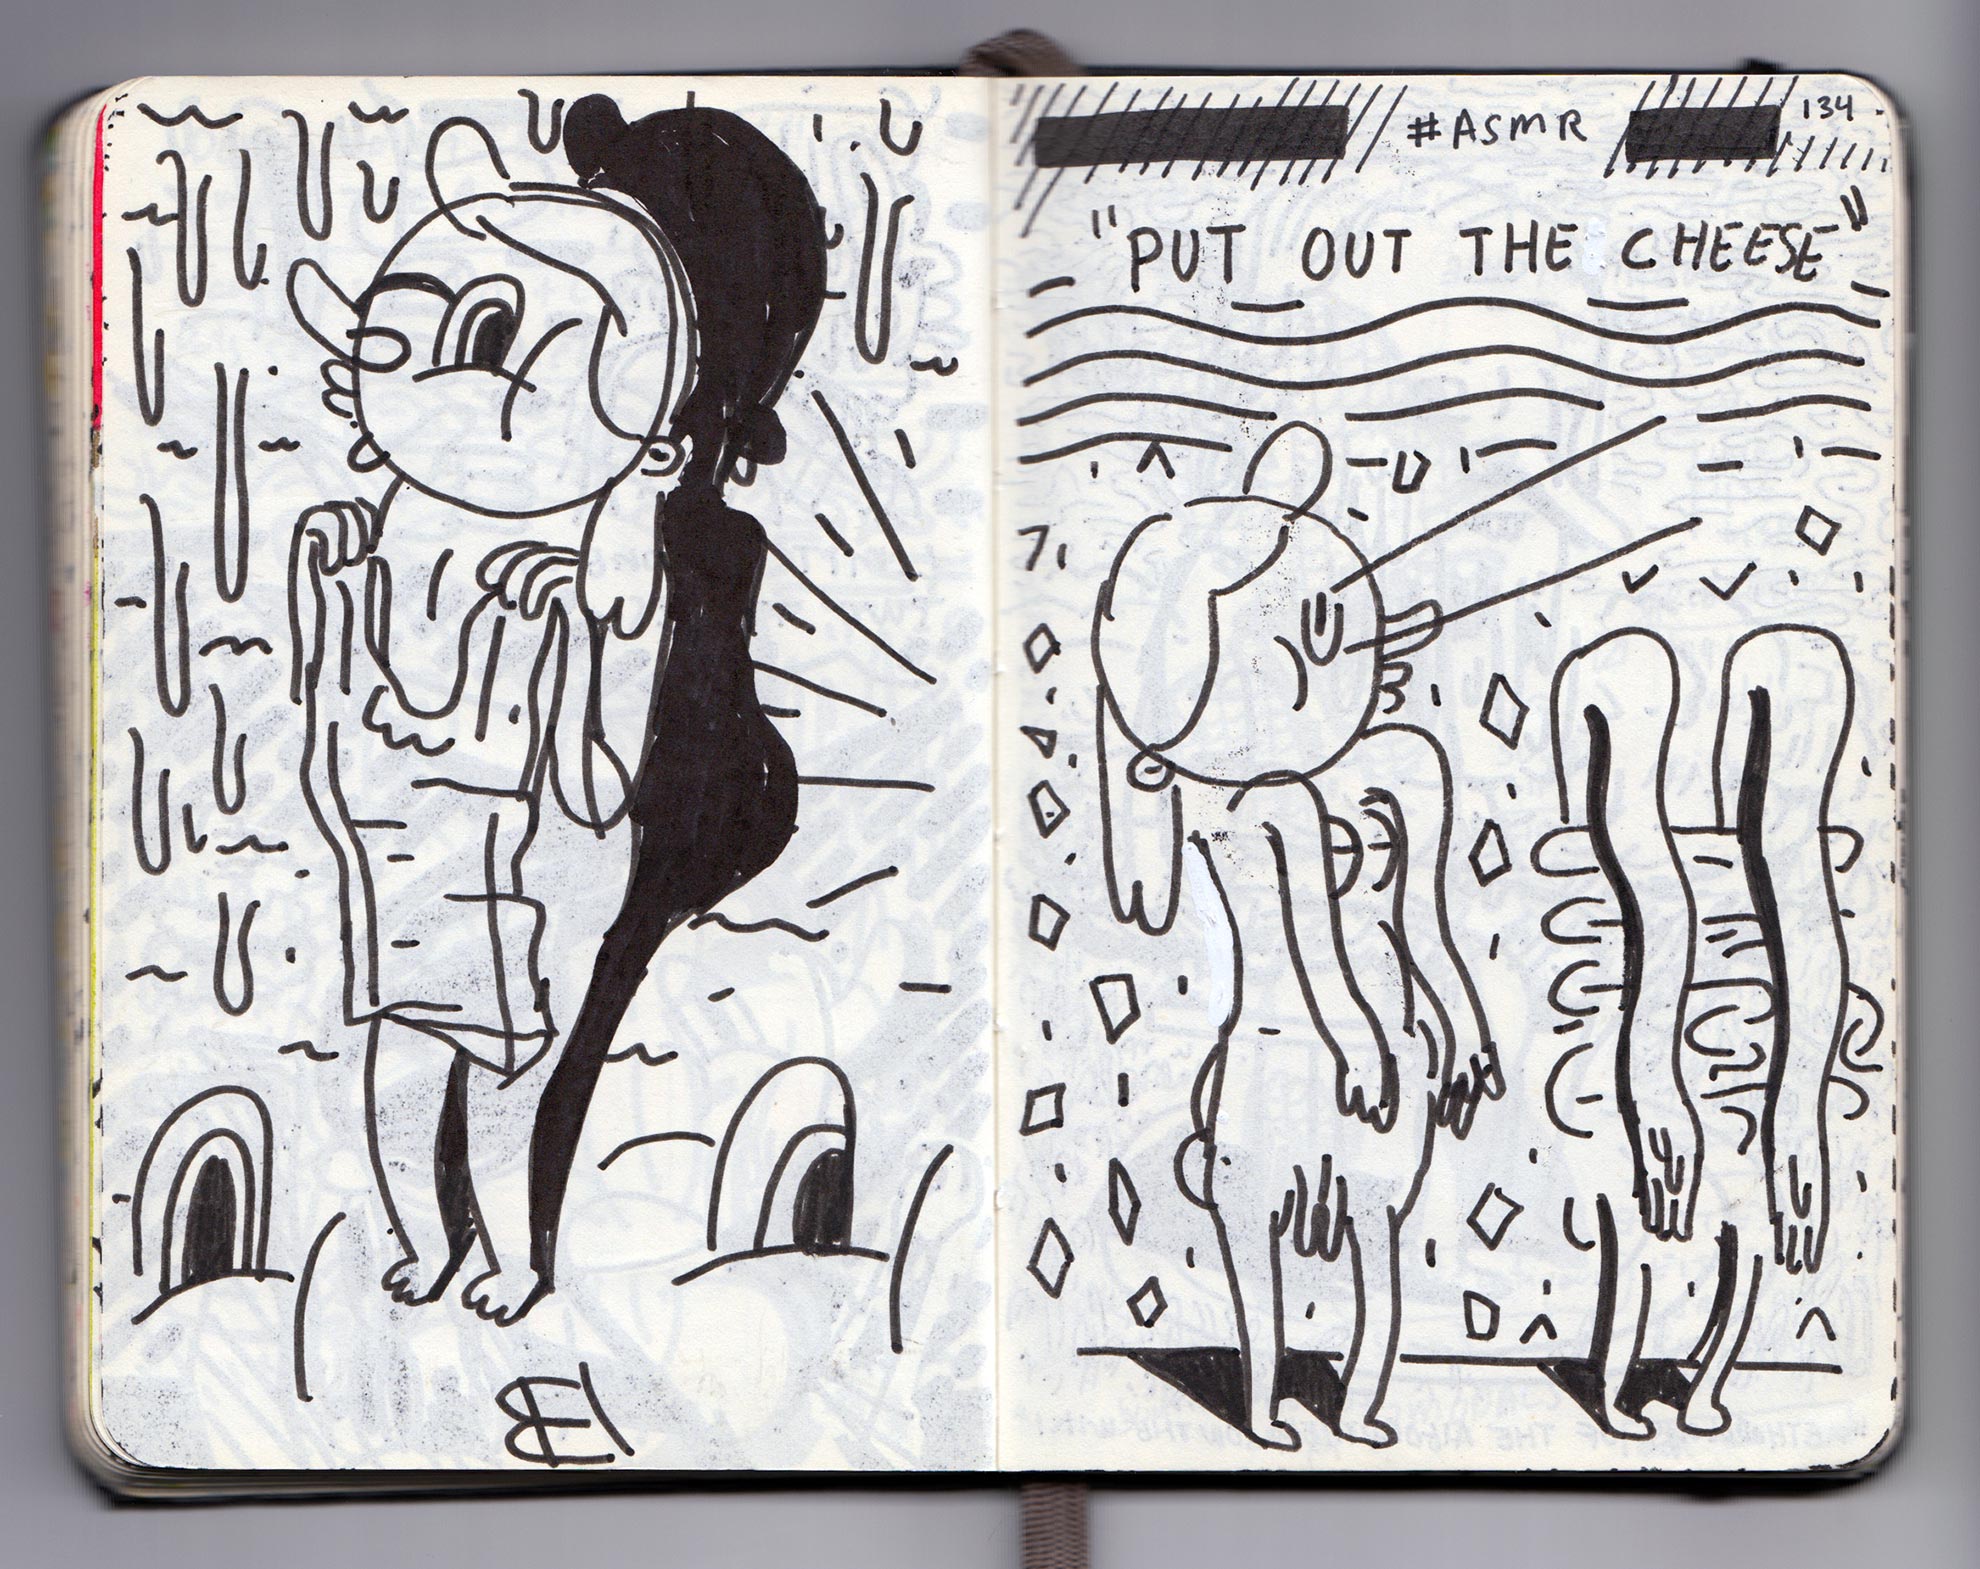 #ASMR
134
"PUT OUT THE CHEESE"